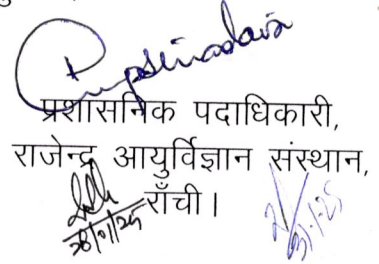 प्रशासनिक पदाधिकारी,
राजेन्द्र आयुर्विज्ञान संस्थान,
राँची।
28/01/25